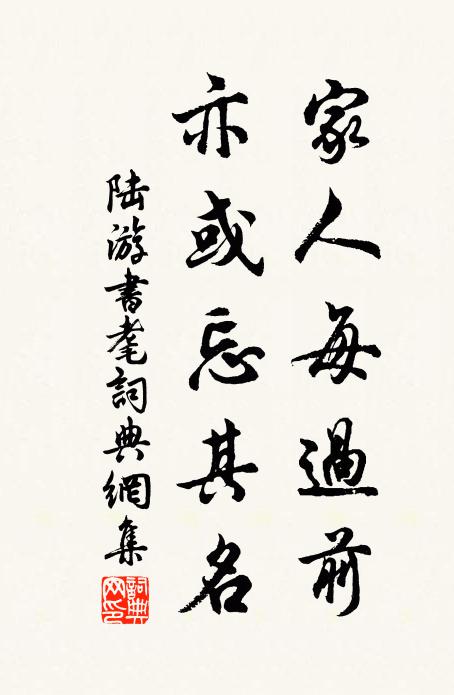 家人每過前
亦或忘其名
陸游書耄詞典網集
詞典網印